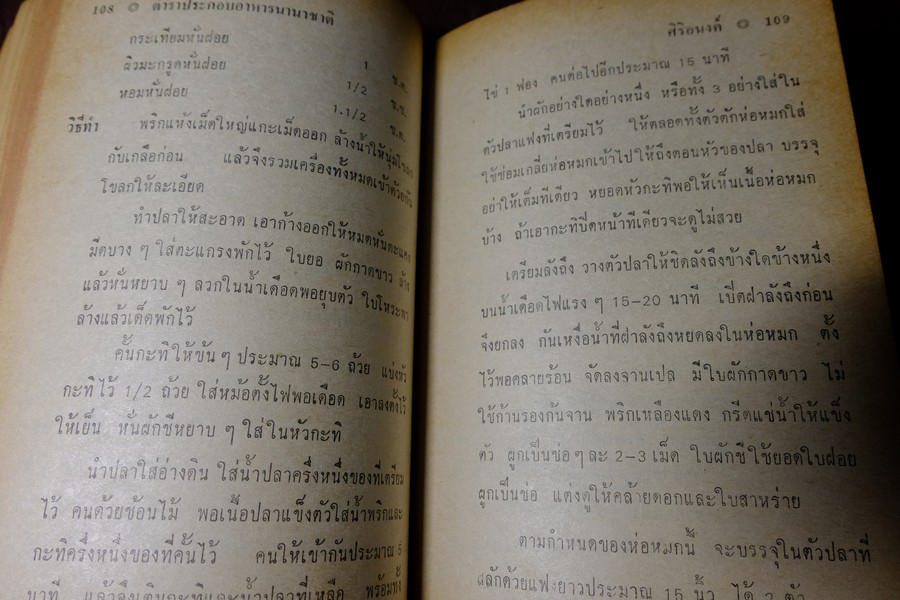 108 ๏ ตำราประกอบอาหารนานาชาติ
กระเทียมหั่นฝอย
ผิวมะกรูดหั่นฝอย 1 ช.ต.
หอมหั่นฝอย 1/2 ช.ช.
1.1/2 ช.ต.
วิธีทำ พริกแห้งเม็ดใหญ่แกะเม็ดออก ล้างน้ำให้นุ่มโขลก
กับเกลือก่อน แล้วจึงรวมเครื่องทั้งหมดเข้าด้วยกัน
โขลกให้ละเอียด
ทำปลาให้สะอาด เอาก้างออกให้หมดหั่นตะแคง
มีดบาง ๆ ใส่ตะแกรงพักไว้ ใบยอ ผักกาดขาว ล้าง
แล้วหั่นหยาบ ๆ ลวกในน้ำเดือดพอยุบตัว ใบโหระพา
ล้างแล้วเด็ดพักไว้
คั้นกะทิให้ข้น ๆ ประมาณ 5-6 ถ้วย แบ่งหัว
กะทิไว้ 1/2 ถ้วย ใส่หม้อตั้งไฟพอเดือด เอาลงตั้งไว้
ให้เย็น หั่นผักชีหยาบ ๆ ใส่ในหัวกะทิ
นำปลาใส่อ่างดิน ใส่น้ำปลาครึ่งหนึ่งของที่เตรียม
ไว้ คนด้วยช้อนไม้ พอเนื้อปลาแข็งตัวใส่น้ำพริกและ
กะทิครึ่งหนึ่งของที่คั้นไว้ คนให้เข้ากันประมาณ 5
นาที แล้วจึงเติมกะทิและน้ำปลาที่เหลือ พร้อมทั้ง
ศิริอนงค์ ๏ 109
ไข่ 1 ฟอง คนต่อไปอีกประมาณ 15 นาที
นำผักอย่างใดอย่างหนึ่ง หรือทั้ง 3 อย่างใส่ใน
ตัวปลาแฟงที่เตรียมไว้ ให้ตลอดทั้งตัวตักห่อหมกใส่
ใช้ช่อมเกลี่ยห่อหมกเข้าไปให้ถึงตอนหัวของปลา บรรจุ
อย่าให้เต็มทีเดียว หยอดหัวกะทิพอให้เห็นเนื้อห่อหมก
บ้าง ถ้าเอากะทิปิดหน้าทีเดียวจะดูไม่สวย
เตรียมลังถึง วางตัวปลาให้ชิดลังถึงข้างใดข้างหนึ่ง
บนน้ำเดือดไฟแรง ๆ 15-20 นาที เปิดฝาลังถึงก่อน
จึงยกลง กันเหงื่อน้ำที่ฝาลังถึงหยดลงในห่อหมก ตั้ง
ไว้พอคลายร้อน จัดลงจานเปล มีใบผักกาดขาว ไม่
ใช้ก้านรองก้นจาน พริกเหลืองแดง กรีดแช่น้ำให้แข็ง
ตัว ผูกเป็นช่อ ๆ ละ 2-3 เม็ด ใบผักชีใช้ยอดใบฝอย
ผูกเป็นช่อ แต่งดูให้คล้ายดอกและใบสาหร่าย
ตามกำหนดของห่อหมกนี้ จะบรรจุในตัวปลาที่
สลักด้วยแฟงยาวประมาณ 15 นิ้ว ได้ 2 ตัว